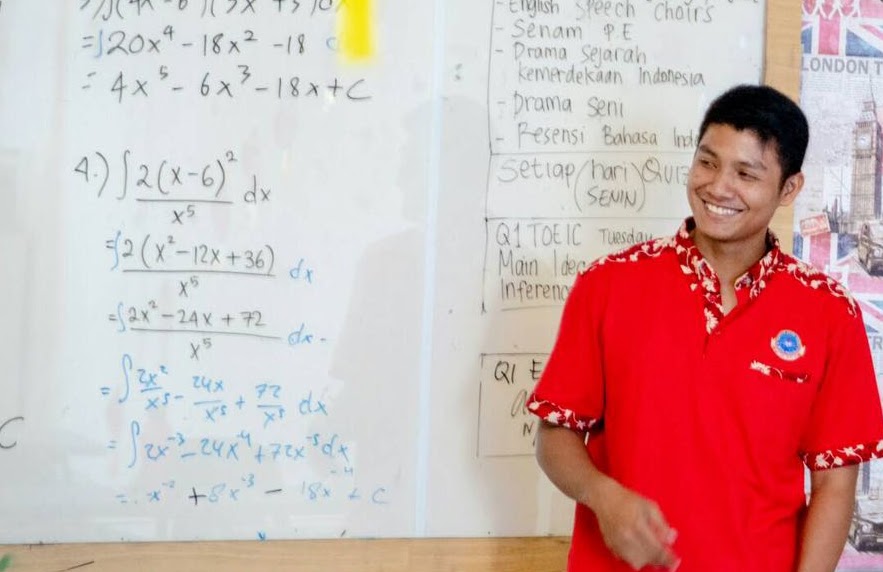 =∫20x⁴ - 18x² - 18
= 4x⁵ - 6x³ - 18x + C
4.) ∫ 2(x-6)² / x⁵ dx
=∫ 2(x² - 12x + 36) / x⁵ dx
=∫ 2x² - 24x + 72 / x⁵ dx
= ∫ 2x²/x⁵ - 24x/x⁵ + 72/x⁵ dx
= ∫ 2x⁻³ - 24x⁻⁴ + 72x⁻⁵ dx
= -x⁻² + 8x⁻³ - 18x⁻⁴ + C
C
- English Speech Choirs
- Senam P.E
- Drama Sejarah
kemerdekaan Indonesia
- Drama Seni
- Resensi Bahasa
Setiap (hari SENIN)
Q1 TOEIC Tuesday
Main
Q1
LONDON